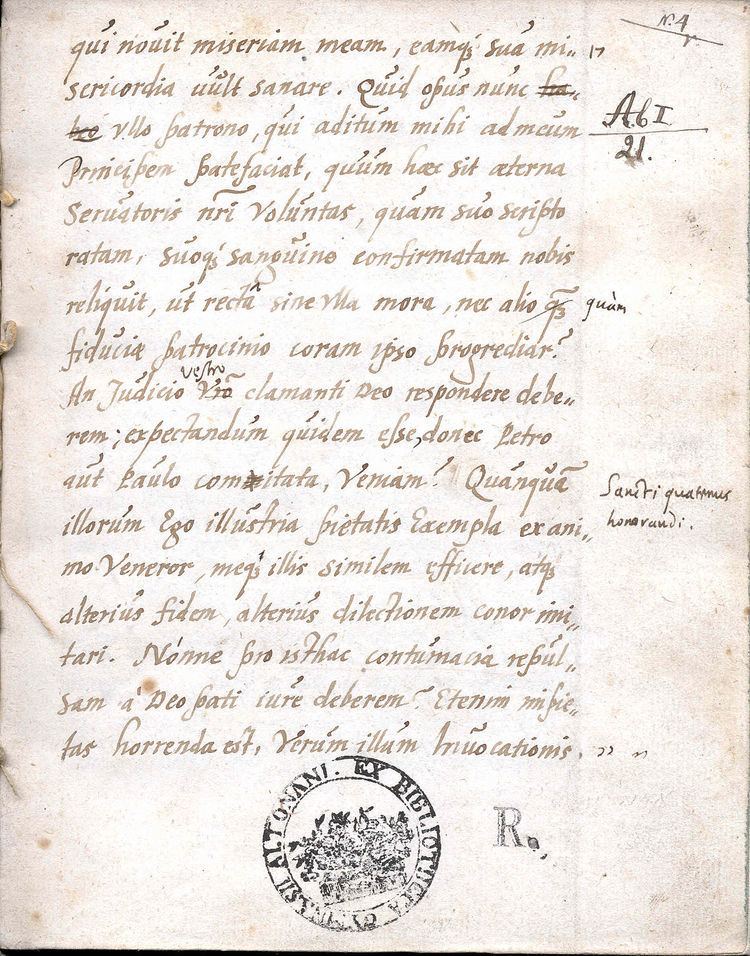 N. 4
qui novit miseriam meam, eamq; suâ mi„ 17
sericordia vult sanare. Quid opus nunc ha„
beo vllo patrono, qui aditum mihi ad meum
Principem patefaciat, quum hæc sit æterna
Servatoris nr̃i Voluntas, quam suo scripto
ratam, suoq; sanguine confirmatam nobis
reliquit, ut rectâ sine vlla mora, nec alio q̃ quàm
fiduciæ patrocinio coram ipso progrediar?
vestro
An Judicio Vr̃o clamanti Deo respondere debe„
rem; expectandum quidem esse, donec Petro
aut Paulo comitata, Veniam? Quanquã
illorum Ego illustria pietatis Exempla ex ani„
mo Veneror, meq; illis similem efficere, atq;
alterius fidem, alterius dilectionem conor imi„
tari. Nónne pro isthac contumacia repul„
sam à Deo pati iure deberem? Etenim impie„
tas horrenda est, Verum illum Invocationis.
AbI
21.
Sancti quatenus
honorandi.
GYMNASII ALTONANI. EX BIBLIOTHECA
R.